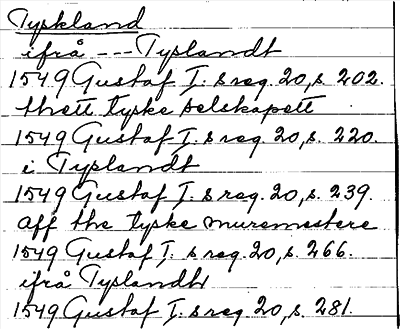 Tyskland
ifrå --- Tyslandt
1549 Gustaf I:s reg. 20, s. 202.
thett tyske selskapett
1549 Gustaf I:s reg. 20, s. 220.
i Tyslandt
1549 Gustaf I:s reg. 20, s. 239.
aff the tyske muremestere
1549 Gustaf I:s reg. 20, s. 266.
ifrå Tyslandt
1549 Gustaf I:s reg 20, s. 281.